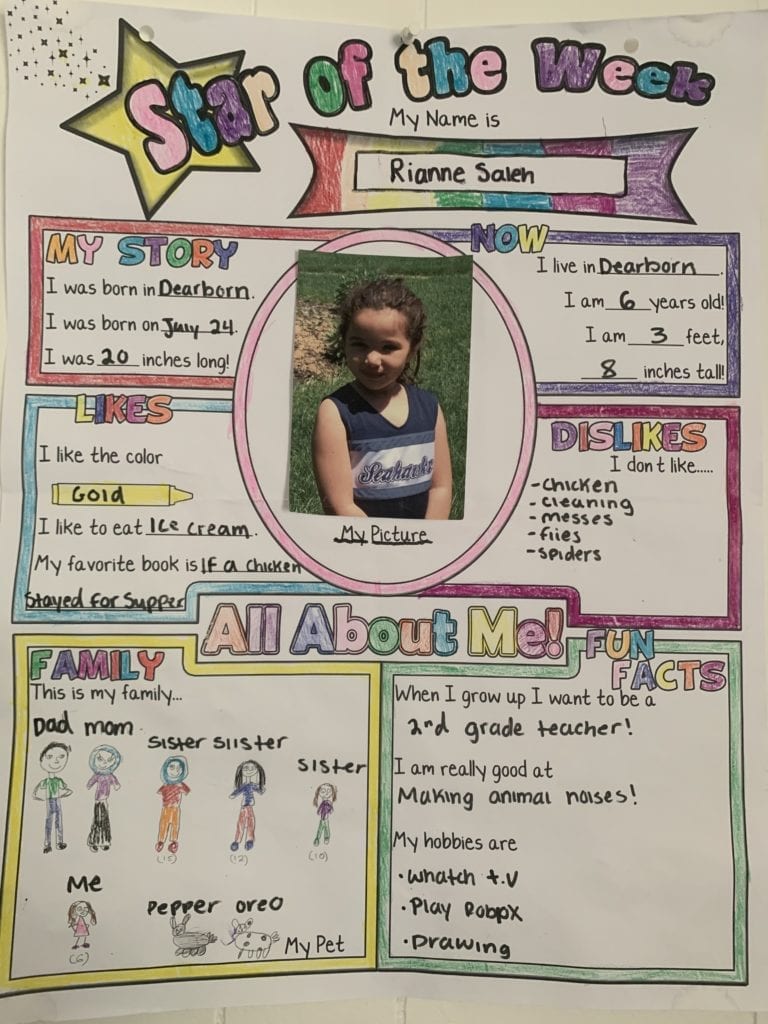 Star of the Week
My Name is
Rianne Saleh
MY STORY
I was born in Dearborn.
I was born on July 24.
I was 20 inches long!
NOW
I live in Dearborn.
I am 6 years old!
I am 3 feet,
8 inches tall!
LIKES
I like the color
Gold
I like to eat Ice cream.
My favorite book is If a Chicken
Stayed for Supper
Seahawks
My Picture
DISLIKES
I don't like.....
-Chicken
-cleaning
-messes
-flies
-spiders
All About Me!
FAMILY
This is my family...
Dad mom
sister siister
sister
(15) (12) (10)
Me
Pepper oreo
(6)
My Pet
FUN FACTS
When I grow up I want to be a
2nd grade teacher!
I am really good at
Making animal noises!
My hobbies are
•whatch t.v
•Play Roblox
•Drawing